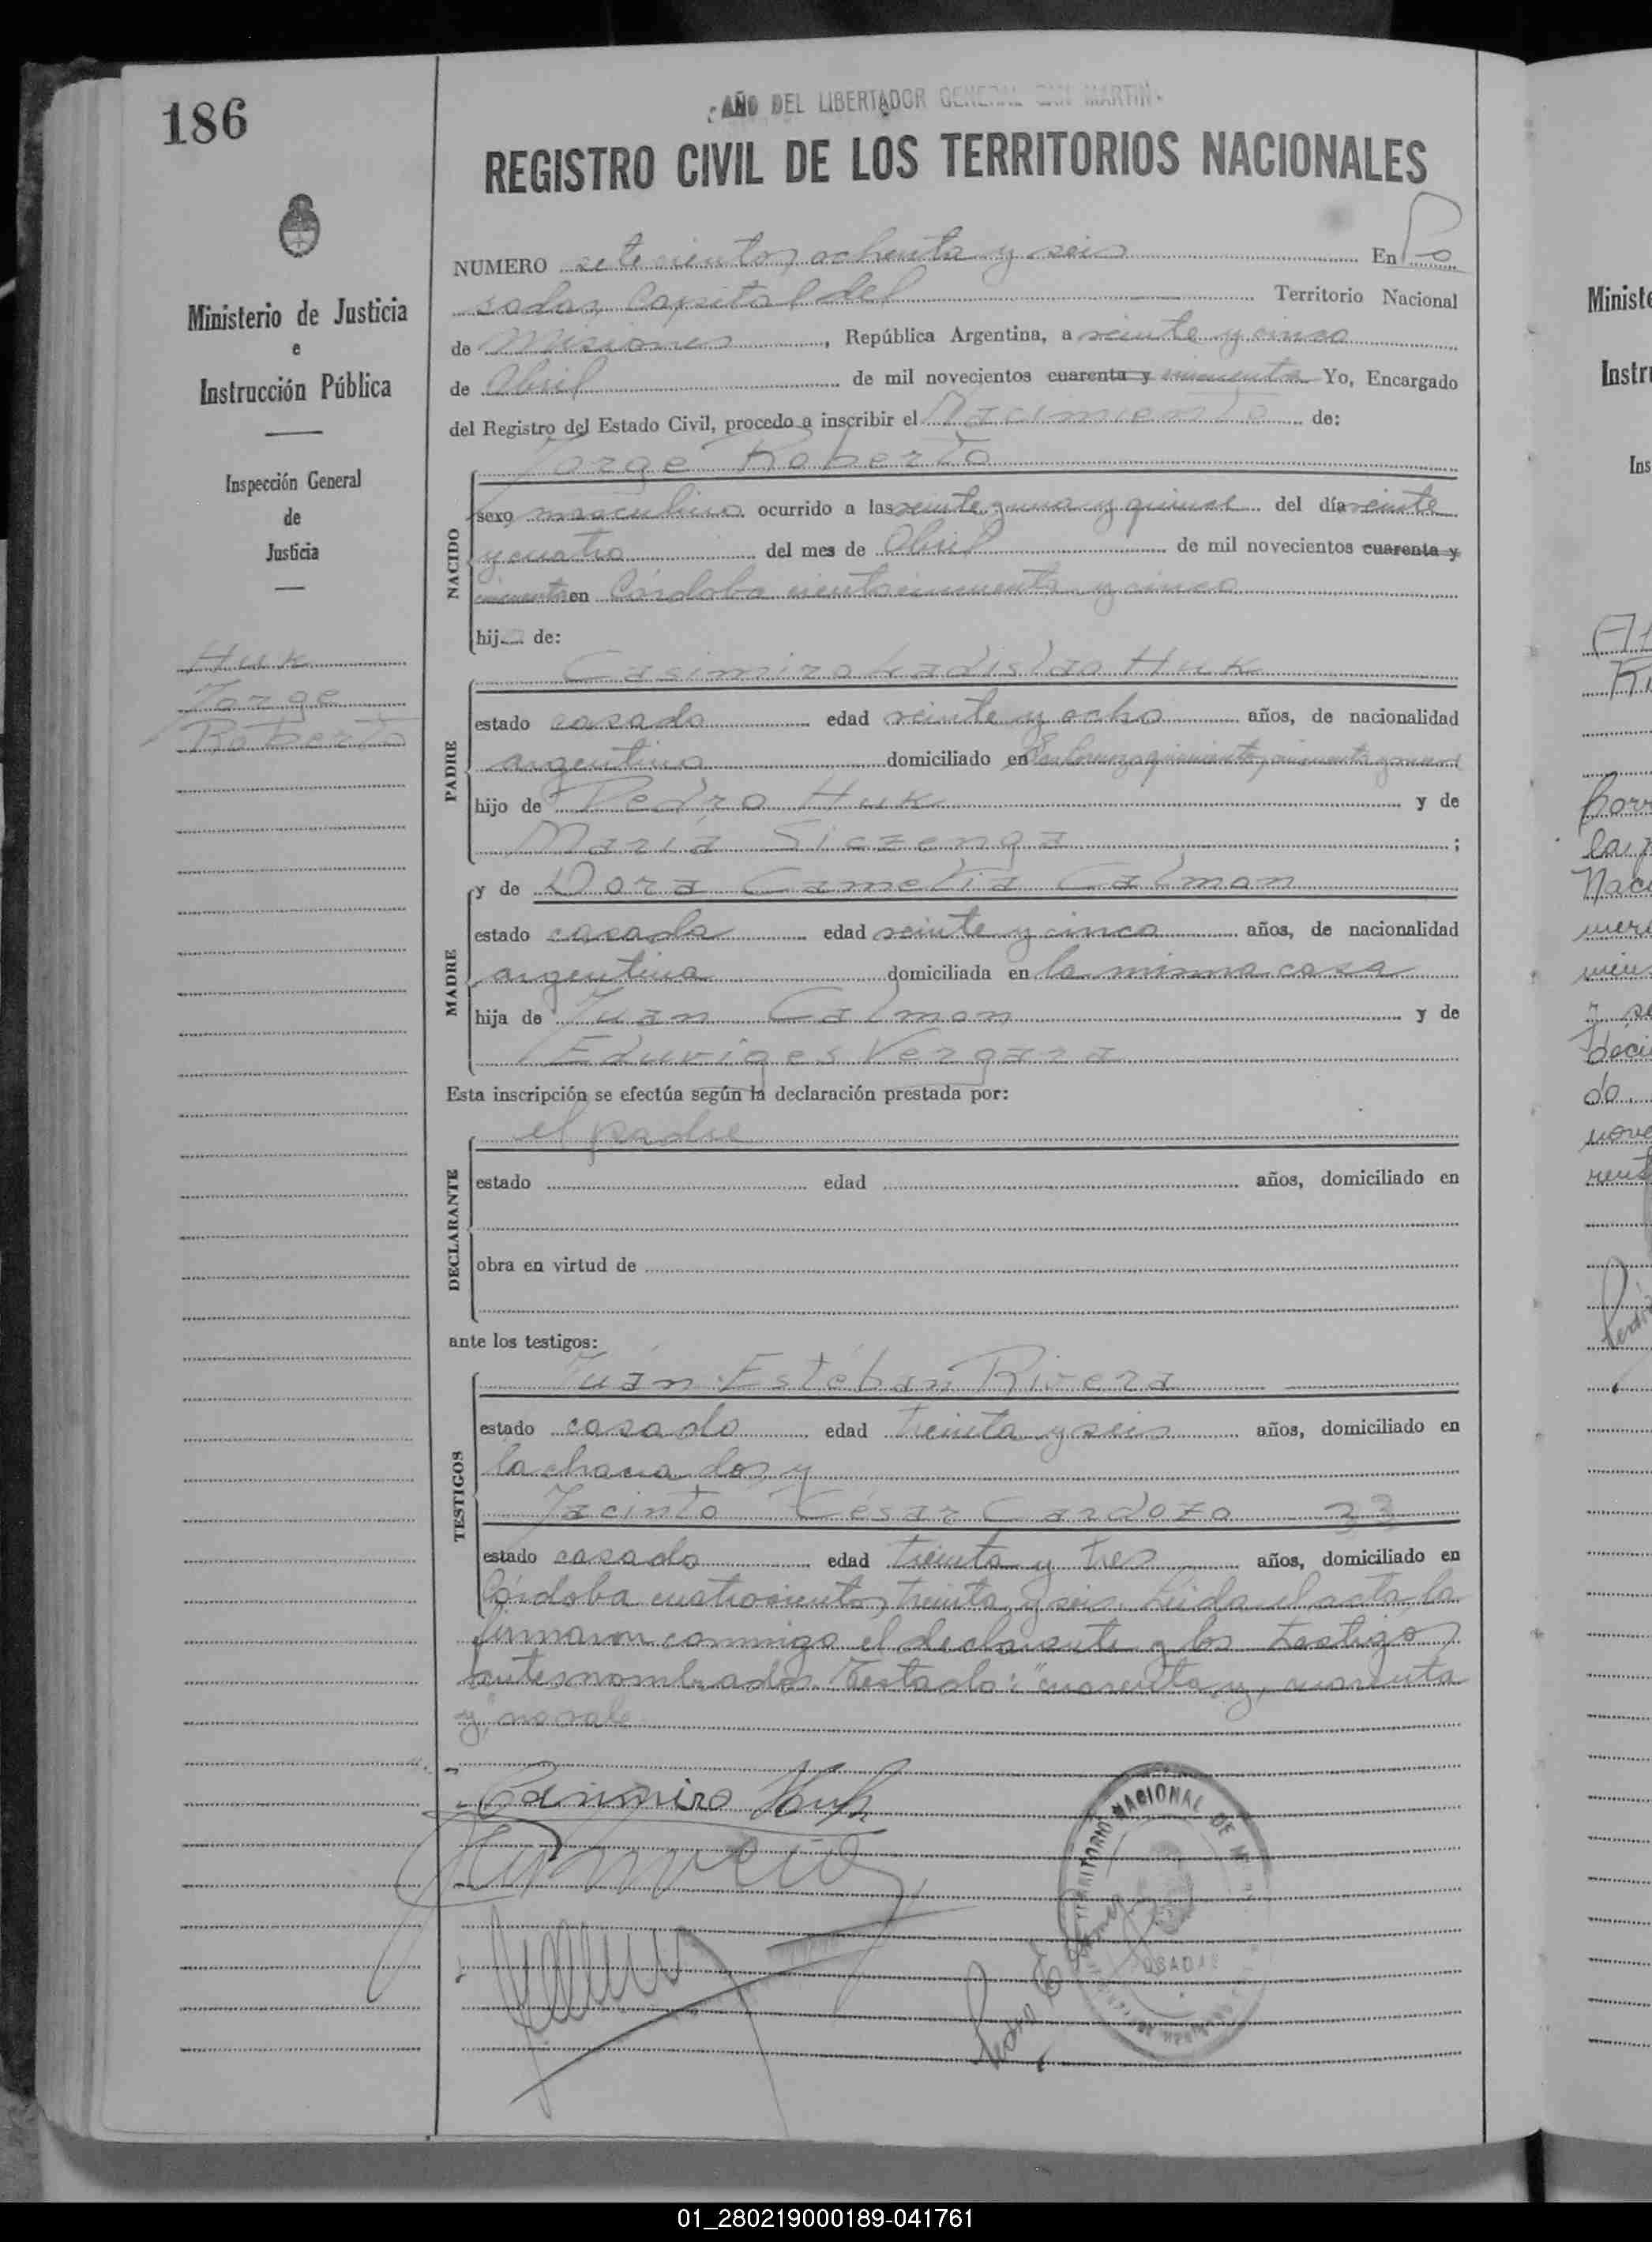 186
"AÑO DEL LIBERTADOR GENERAL SAN MARTIN"
REGISTRO CIVIL DE LOS TERRITORIOS NACIONALES
Ministerio de Justicia
e
Instrucción Pública
Inspección General
de
Justicia
Huk
Jorge
Roberto
NUMERO setecientos ochenta y seis En Po
sadas, Capital del Territorio Nacional
de Misiones, República Argentina, a veinte y cinco
de Abril de mil novecientos cuarenta y cincuenta Yo, Encargado
del Registro del Estado Civil, procedo a inscribir el Nacimiento de:
NACIDO
Jorge Roberto
sexo masculino ocurrido a las veinte y una y quince del día veinte
y cuatro del mes de Abril de mil novecientos cuarenta y
cincuenta en Córdoba ciento cincuenta y cinco
hijo de:
PADRE
Casimiro Ladislao Huk
estado casado edad veinte y ocho años, de nacionalidad
argentino domiciliado en San Lorenzo quinientos cincuenta y nueve
hijo de Pedro Huk y de
María Siczenga;
MADRE
y de Dora Camelia Calmon
estado casada edad veinte y cinco años, de nacionalidad
argentina domiciliada en la misma casa
hija de Juan Calmon y de
Eduviges Vergara
Esta inscripción se efectúa según la declaración prestada por:
DECLARANTE
el padre
estado edad años, domiciliado en
obra en virtud de
ante los testigos:
TESTIGOS
Juan Estéban Rivera
estado casado edad treinta y seis años, domiciliado en
la chacra dos y
Jacinto César Cardozo 33
estado casado edad treinta y tres años, domiciliado en
Córdoba cuatrocientos treinta y seis. Leida el acta, la
firmaron conmigo el declarante y los testigos
antes nombrados. Testado: "cuarenta y, cuarenta
y", no vale
Casimiro Huk
TERRITORIO NACIONAL DE
POSADAS
Ministe
Instru
Ins
01_280219000189-041761